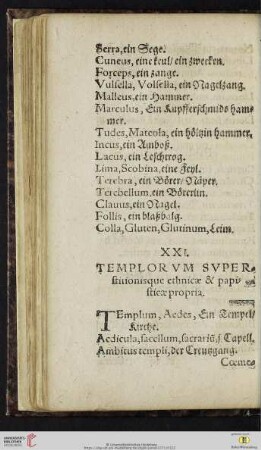 Serra, ein Sege.
Cuneus, eine keul/ ein zwecken.
Forceps, ein zange.
Vulsella, Volsella, ein Nagelzang.
Malleus, ein Hammer.
Marculus, Ein Kupfferschmids ham⸗
mer.
Tudes, Mateola, ein höltzin hammer.
Incus, ein Amboß.
Lacus, ein Leschtrog.
Lima, Scobina, eine Feyl.
Terebra, ein Börer/ Näper.
Terebellum, ein Börerlin.
Clauus, ein Nagel.
Follis, ein blaßbalg.
Colla, Gluten, Glutinum, Leim.
XXI.
TEMPLORVM SVPER-
stitionisque ethnicæ & papi
sticæ propria.
TEmplum, Aedes, Ein Tempel/
Kirche.
Aedicula, sacellum, sacrariũ, Capell.
Ambitus templi, der Creutzgang.
Cœme-